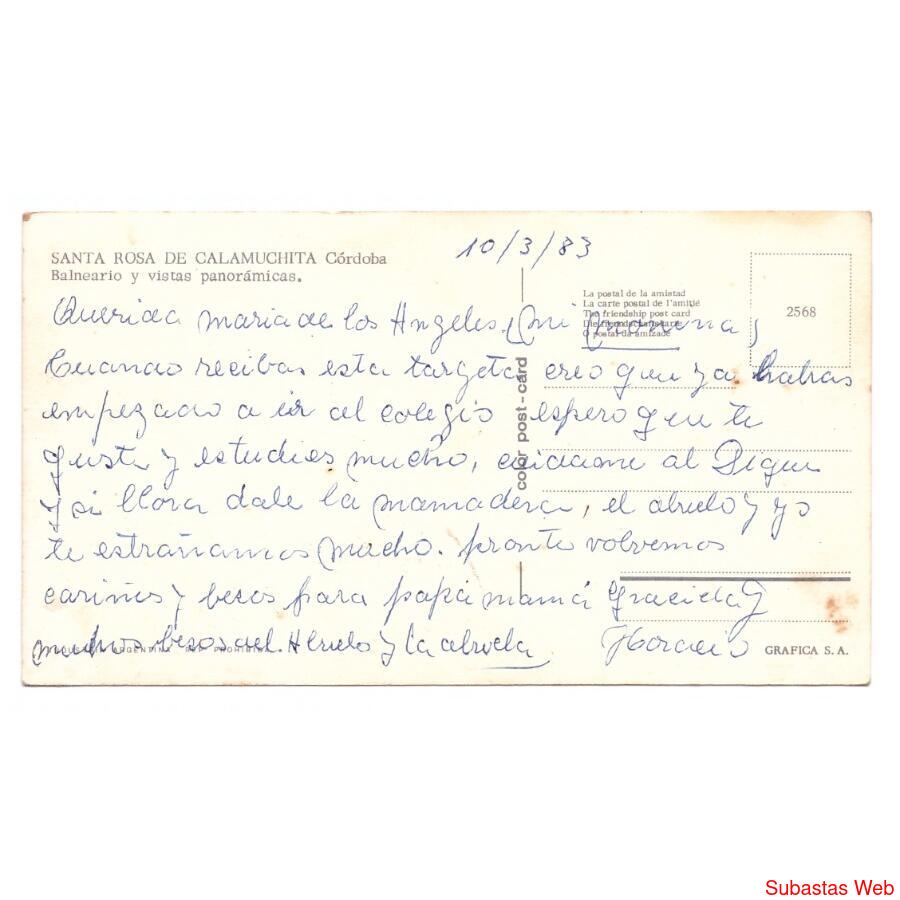 10/3/83
SANTA ROSA DE CALAMUCHITA Córdoba
Balneario y vistas panorámicas.
La postal de la amistad
La carte postal de l'amitié
The friendship post card
O postal da amizade
2568
color post-card
Querida maria de los Angeles, mi
Cuando recibas esta targeta creo que ya habras
empezado a ir al colegio espero que te
guste y estudies mucho, cuidame al Dique
y si llora dale la mamadera, el abuelo y yo
te estrañamos mucho. pronto volvemos
cariños y besos para papá mamá Graciela y
muchos besos del Abuelo y la abuela Horacio
INDUSTRIA ARGENTINA REP. PROHIBIDA
GRAFICA S.A.
Subastas Web